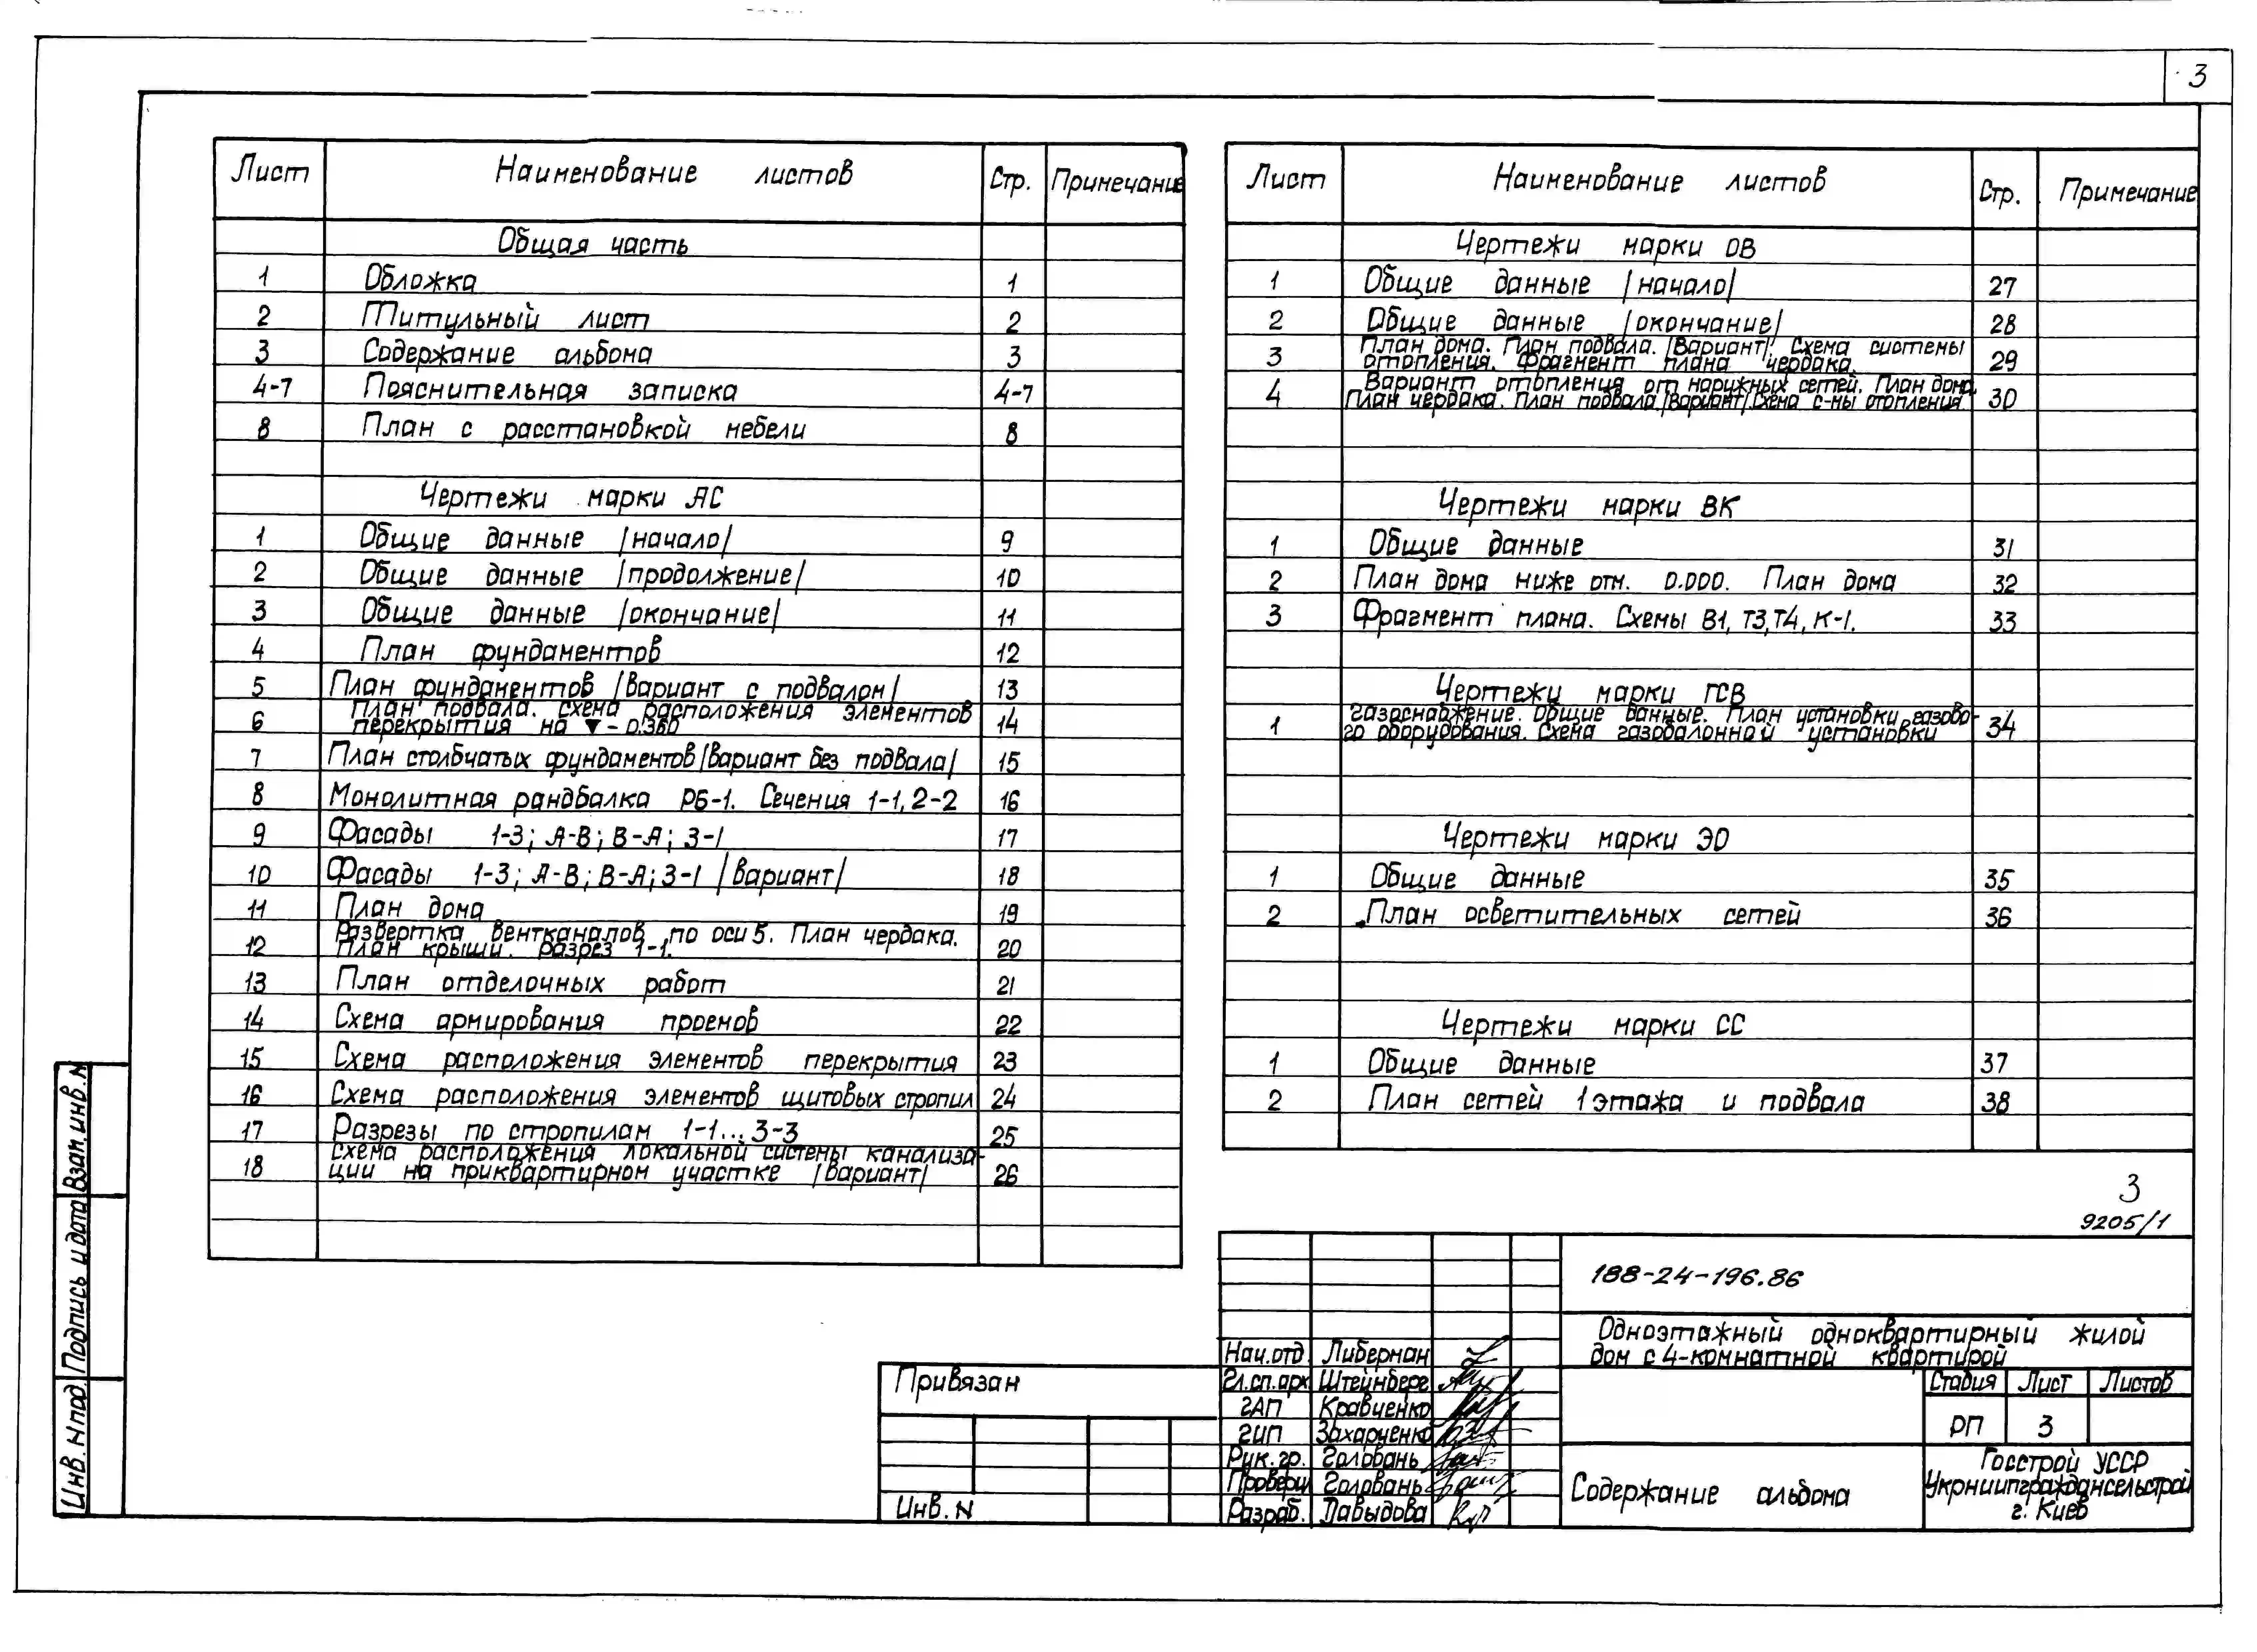 3
Лист Наименование листов Стр. Примечание
Общая часть
1 Обложка 1
2 Титульный лист 2
3 Содержание альбома 3
4-7 Пояснительная записка 4-7
8 План с расстановкой мебели 8
Чертежи марки АС
1 Общие данные /начало/ 9
2 Общие данные /продолжение/ 10
3 Общие данные /окончание/ 11
4 План фундаментов 12
5 План фундаментов /вариант с подвалом/ 13
6 План подвала. Схема расположения элементов
перекрытия на ▼-0.360 14
7 План столбчатых фундаментов /вариант без подвала/ 15
8 Монолитная рандбалка РБ-1. Сечения 1-1, 2-2 16
9 Фасады 1-3; А-В; В-А; 3-1 17
10 Фасады 1-3; А-В; В-А; 3-1 /вариант/ 18
11 План дома 19
12 Развертка вентканалов по оси Б. План чердака.
План крыши. разрез 1-1. 20
13 План отделочных работ 21
14 Схема армирования проемов 22
15 Схема расположения элементов перекрытия 23
16 Схема расположения элементов щитовых стропил 24
17 Разрезы по стропилам 1-1...3-3 25
18 Схема расположения локальной системы канализа-
ции на приквартирном участке /вариант/ 26
Лист Наименование листов Стр. Примечание
Чертежи марки ОВ
1 Общие данные /начало/ 27
2 Общие данные /окончание/ 28
3 План дома. План подвала. /Вариант/. Схема системы
отопления. Фрагмент плана чердака. 29
4 Вариант отопления от наружных сетей. План дома.
План чердака. План подвала /вариант/ Схема с-мы отопления. 30
Чертежи марки ВК
1 Общие данные 31
2 План дома ниже отм. 0.000. План дома 32
3 Фрагмент плана. Схемы В1, Т3, Т4, К-1. 33
Чертежи марки ГСВ
1 Газоснабжение. Общие данные. План установки газово-
го оборудования. Схема газобалонной установки 34
Чертежи марки ЭО
1 Общие данные 35
2 План осветительных сетей 36
Чертежи марки СС
1 Общие данные 37
2 План сетей 1 этажа и подвала 38
3
9205/1
188-24-196.86
Одноэтажный одноквартирный жилой
дом с 4-комнатной квартирой
Нач.отд. Либерман
Гл.сп.арх Штейнберг
ГАП Кравченко
ГИП Захарченко
Рук.гр. Головань
Проверил Головань
Разраб. Давыдова
Стадия Лист Листов
РП 3
Содержание альбома
Госстрой УССР
Укрниипграждансельстрой
г. Киев
Привязан
Инв. N
Взам. инв. N
Подпись и дата
Инв. N под.